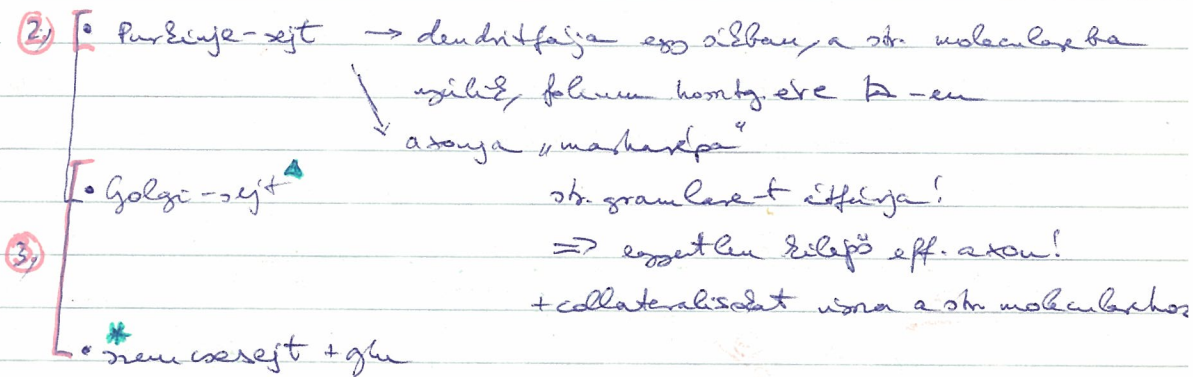 2, • Purkinje-sejt → dendritfája egy síkban, a str. moleculareba
nyúlik, folium hossztg.ére ⊾-en
axonja „marharépa"
• Golgi-sejt
str. granulare-t átfúrja!
3, ⇒ egyetlen kilépő eff. axon!
+collateralisokat vissza a str. molecularehoz
• * szemcsesejt + glu